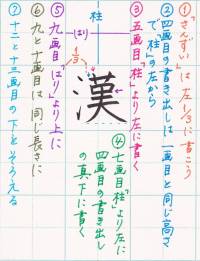 ①「さんずい」は左1/3に書こう
②四画目の書き出しは一画目と同じ高さ
で「柱」の左から
③五画目「柱」より左に書く
④七画目「柱」より左に
四画目の書き出し
の真下に書く
⑤九画目「はり」より上に
⑥九と十画目は同じ長さに
⑦十二と十三画目の下をそろえる
柱
はり
1/3
漢